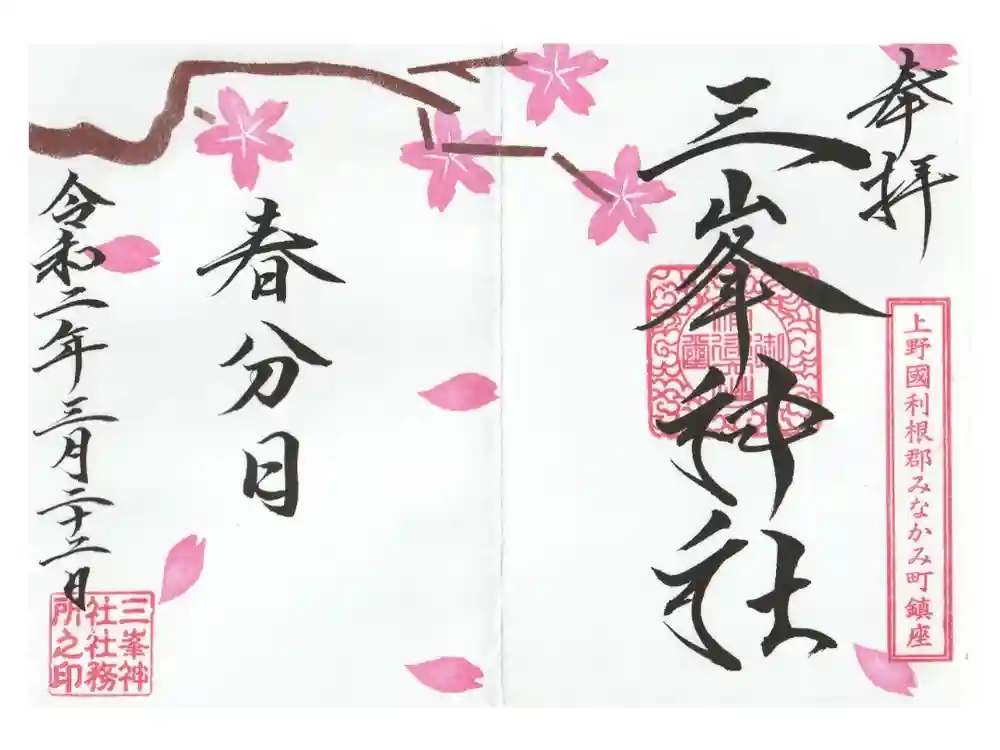 奉拝
上野國利根郡みなかみ町鎮座
三峯神社
春分日
令和二年三月二十二日
三峯神
社社務
所之印